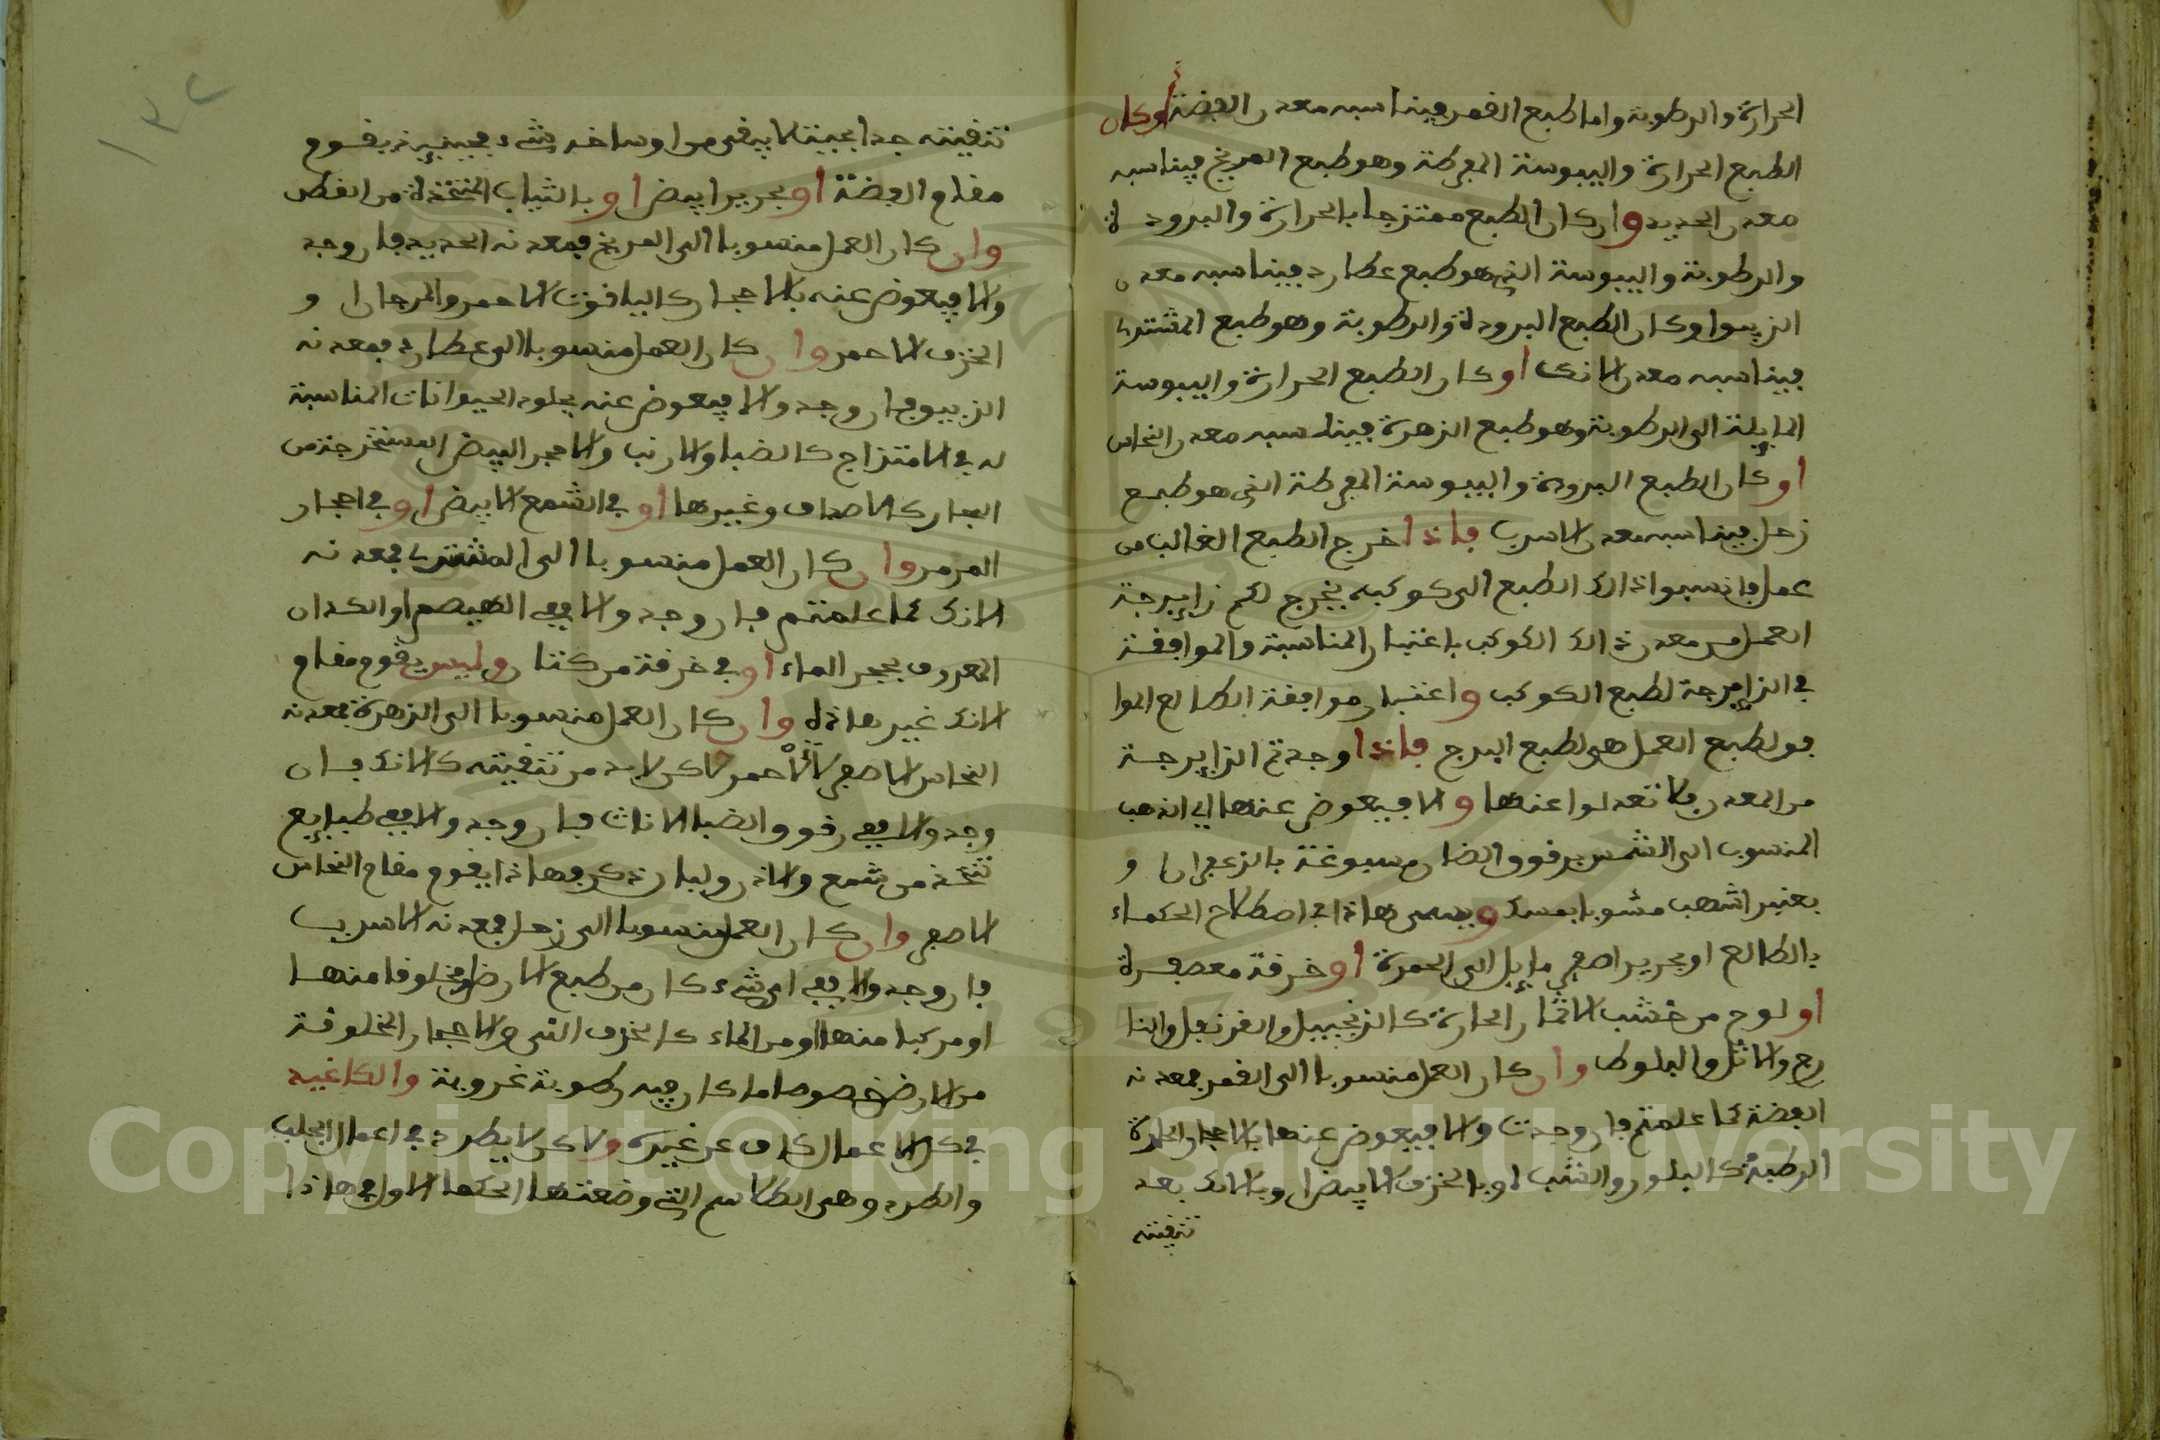 الحرارة والرطوبة واما طبع القمر فيناسبه معدن الفضة أو كان
الطبع الحرارة واليبوسة المفرطة وهو طبع المريخ فيناسبه
معدن الحديد وان كان الطبع ممتزجا بالحرارة والبرودة
والرطوبة واليبوسة الذي هو طبع عطارد فيناسبه معدن
الزيبوا وكان الطبع البرودة والرطوبة وهو طبع المشترى
فيناسبه معدن الانك او كان الطبع الحرارة واليبوسة
المايلة الى الرطوبة وهو طبع الزهرة فيناسبه معدن النحاس
او كان الطبع البرودة واليبوسة المفرطة الذي هو طبع
زحل فيناسبه معدن الاسرب فاذا خرج الطبع الغالب من
عمل فانسبوا ذالك الطبع الى كوكبه يخرج لكم زايرجة
العمل من معدن ذالك الكوكب باعتبار المناسبة والموافقة
في الزايرجة لطبع الكوكب واعتبار موافقة الطالع الموا
فو لطبع العمل هو لطبع البرج فاذا وجدتم الزايرجة
من المعدن فلا تعدلوا عنها والا فيعوض عنها اي الذهب
المنسوب الى الشمس برقوق الضان مسبوغة بالزعفران و
بعنبر اشهب مشوبا بمسك ويسمى هاذا في اصطلاح الحكماء
بالطالع او بحرير اصفر مايل الى الحمرة او خرقة معصفرة
او لوح من خشب الاثمار الحارة كالزنجبيل والقرنفل والنا
رج والاثل والبلوط وان كان العمل منسوبا الى القمر فمعدنه
الفضة كما علمتم فان وجدت والا فيعوض عنها بالاحجار الحارة
الرطبة كالبلور والشب او بالخزف الابيض او بالانك بعد
تنفيته
١٣٢
تنفيته جدا بحيث لا يبقى من اوساخه شيء فحينيذ يقوم
مقام الفضة او بحرير ابيض او بالثياب المتخذة من القطن
وان كان العمل منسوبا الى المريخ فمعدنه الحديد فان وجد
والا فيعوض عنه بالاحجار كالياقوت الاحمر والمرجان و
الخزف الاحمر وان كان العمل منسوبا الى عطارد فمعدنه
الزيبو فان وجد والا فيعوض عنه بجلود الحيوانات المناسبة
له في الامتزاج كالضبا والارنب والاحجر البيض المستخرجة من
البحار كالاصداف وغيرها او في الشمع الابيض او في احجار
المرمر وان كان العمل منسوبا الى المشترى فمعدنه
الانك كما علمتم فان وجد والا ففي الهيصم او الكدان
المعروف بحجر الماء او في خرقة من كتان وليس يقوم مقام
الانك غير هاذه وان كان العمل منسوبا الى الزهرة فمعدنه
النحاس الاصفر لا الاحمر لاكن لا بد من تنفيته كالانك فان
وجد والا ففي رقوق الضبا الاناث فان وجد والا ففي طبايع
تتخذ من شمع ولاذن ولبان ذكر فهاذا يقوم مقام النحاس
الاصفر وان كان العمل منسوبا الى زحل فمعدنه الاسرب
فان وجد والا ففي اي شيء كان من طبع الارض مخلوقا منها
او مركبا منها او من الماء كالخزف الني والاحجار المخلوقة
من الارض خصوصا ما كان فيه رطوبة غروية والكاغيد
في كل الاعمال كاف عن غيره ولاكن لا يطرد في اعمال الجلب
والطرد وهي الطلاسم التي وضعتها الحكما الاول في هاذا